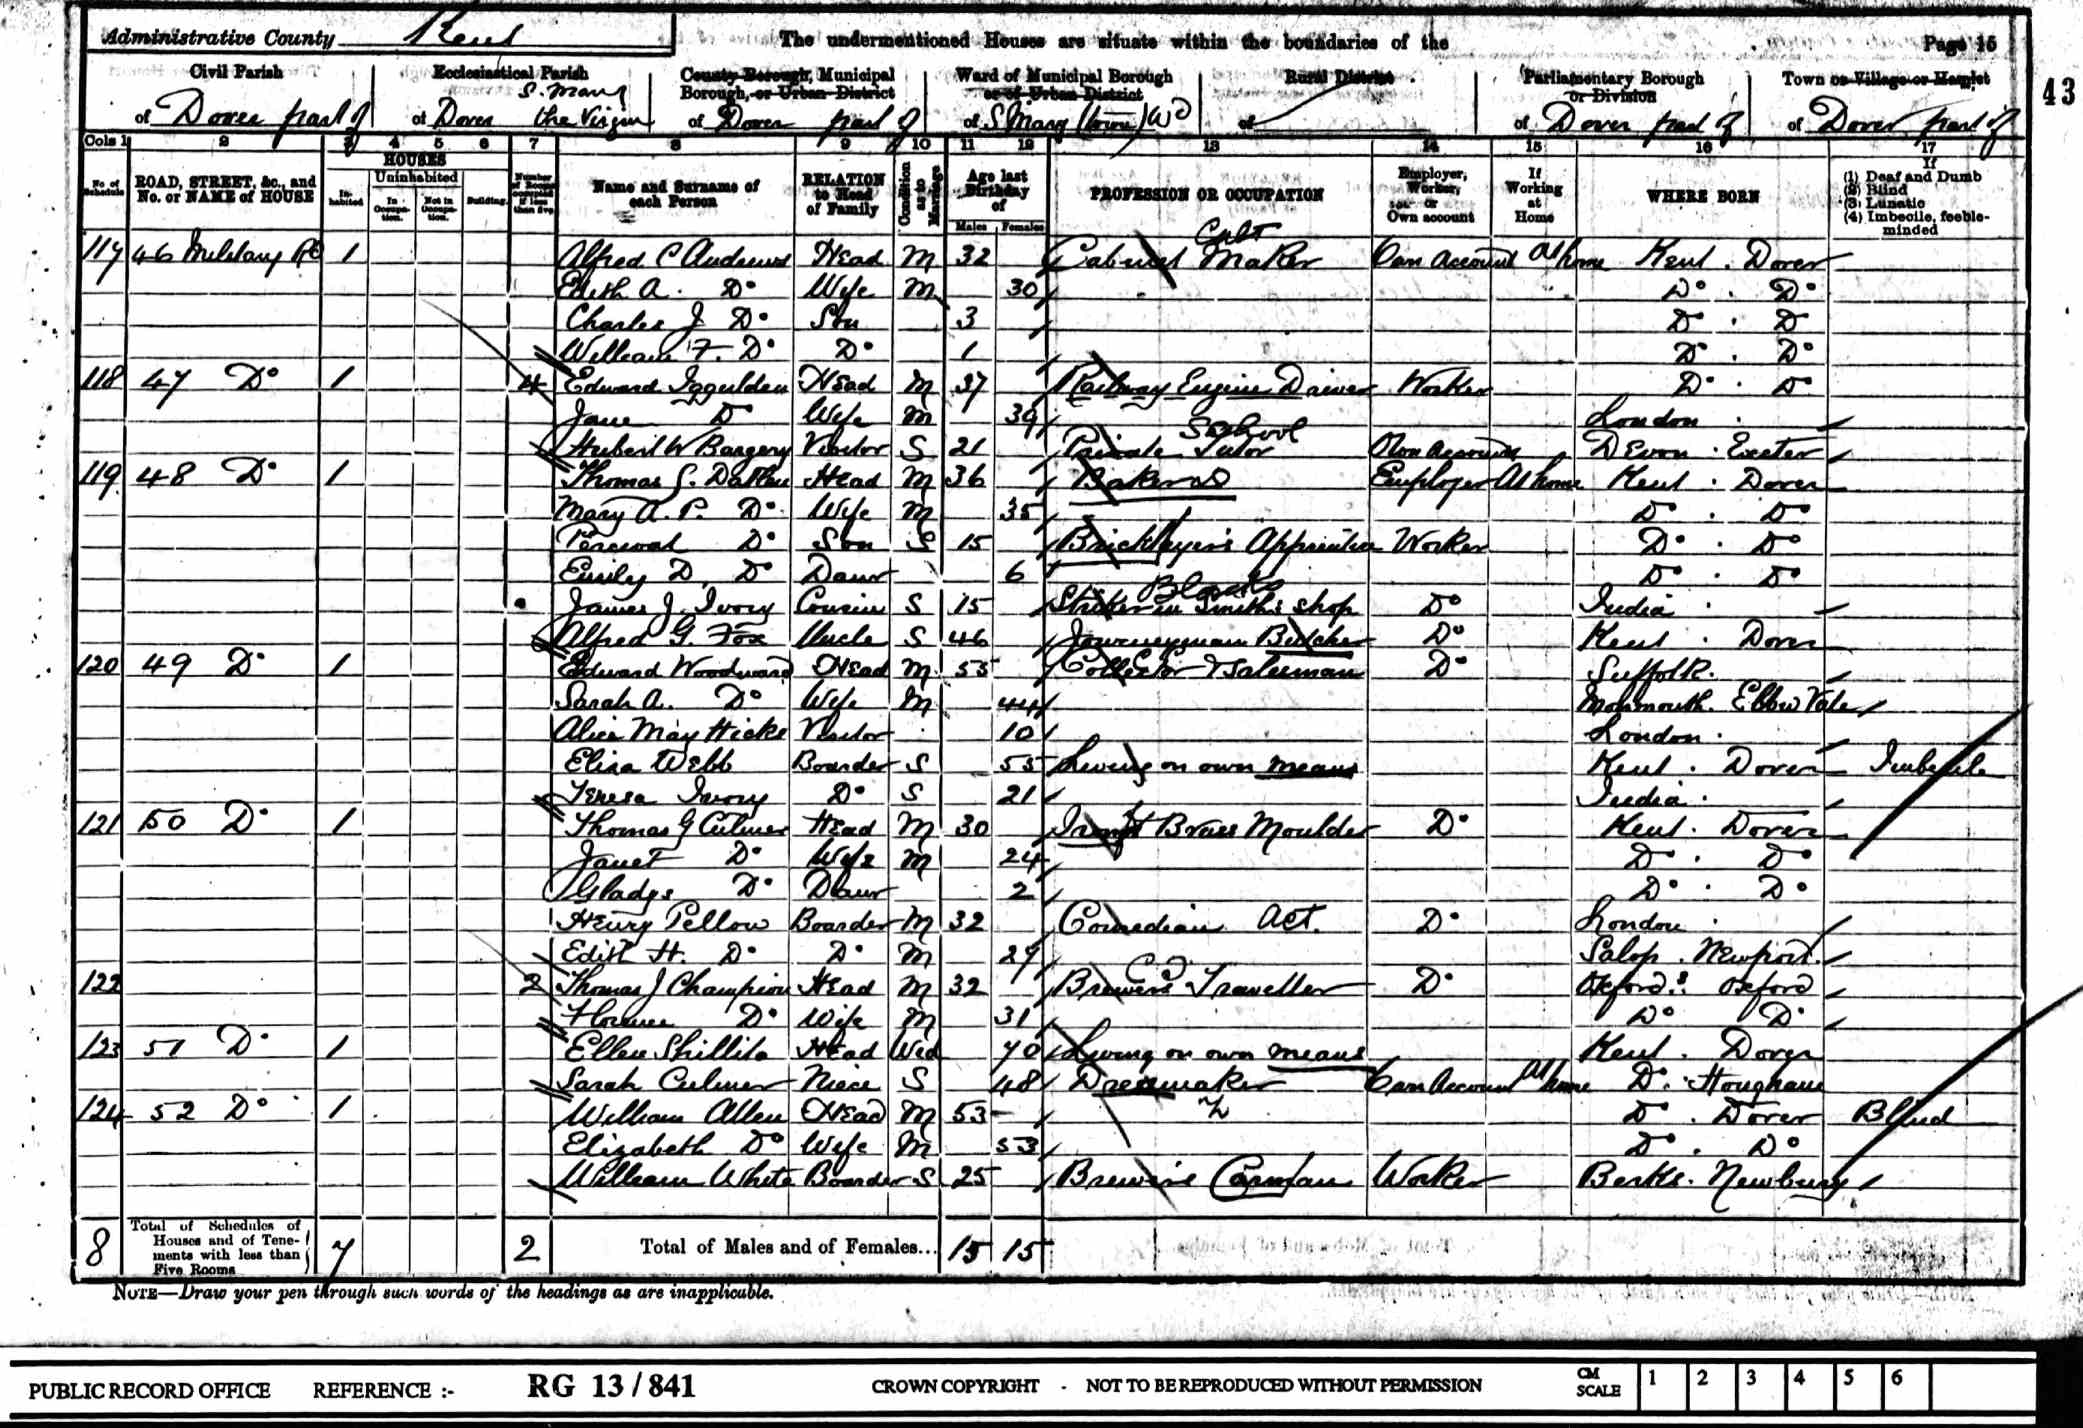 Administrative County Kent
The undermentioned Houses are situate within the boundaries of the
Page 15
43
Civil Parish
of Dover part of
Ecclesiastical Parish
of Dover S. Mary the Virgin
County Borough, Municipal Borough, or Urban District
of Dover part of
Ward of Municipal Borough or of Urban District
of S Mary (Town) Wd
Rural District
of
Parliamentary Borough or Division
of Dover part of
Town or Village or Hamlet
of Dover part of
Cols 1 2 3 4 5 6 7 8 9 10 11 12 13 14 15 16 17
No. of Schedule
ROAD, STREET, &c., and No. or NAME of HOUSE
HOUSES
Inhabited
Uninhabited
In Occupation.
Not in Occupation.
Building.
Number of Rooms occupied if less than five
Name and Surname of each Person
RELATION to Head of Family
Condition as to Marriage
Age last Birthday of
Males Females
PROFESSION OR OCCUPATION
Employer, Worker, or Own account
If Working at Home
WHERE BORN
If
(1) Deaf and Dumb
(2) Blind
(3) Lunatic
(4) Imbecile, feeble-minded
117 46 Military Rd 1 Alfred C Andrews Head M 32 Cabinet Maker Own Account At home Kent . Dover
Edith A. Do Wife M 30 Do . Do
Charles J Do Son 3 D . D
William F. Do Do 1 Do . Do
118 47 Do 1 4 Edward Iggulden Head M 37 Railway Engine Driver Worker Do . Do
Jane D Wife M 39 London .
Hubert W Bargery Visitor S 21 Private Tutor School Own Account Devon . Exeter
119 48 Do 1 Thomas S. Dathan Head M 36 Baker Employer At home Kent . Dover
Mary A. P. Do Wife M 35 Do . Do
Percival Do Son S 15 Bricklayer's Apprentice Worker Do . Do
Emily D. Do Daur 6 Do . Do
James J. Ivory Cousin S 15 Striker in Smith's shop Blacks Do India .
Alfred G. Fox Uncle S 46 Journeyman Butcher Do Kent . Dover
120 49 Do 1 Edward Woodward Head M 55 Collector & Salesman Do Suffolk.
Sarah A. Do Wife M 44 Monmouth. Ebbw Vale
Alice May Hicks Visitor 10 London .
Eliza Webb Boarder S 55 Living on own means Kent . Dover Imbecile
Teresa Ivory Do S 21 India .
121 50 Do 1 Thomas G Culmer Head M 30 Iron & Brass Moulder Do Kent . Dover
Janet Do Wife M 24 Do . Do
Gladys Do Daur 2 Do . Do
Henry Pellow Boarder M 32 Comedian Act. Do London .
Edith H. Do Do M 29 Salop . Newport.
122 2 Thomas J Champion Head M 32 Brewer's Traveller Do Oxford: Oxford
Florence Do Wife M 31 Do Do
123 51 Do 1 Ellen Shillito Head Wid 70 Living on own means Kent . Dover
Sarah Culmer Niece S 48 Dressmaker Own Account At home Do . Hougham
124 52 Do 1 William Allen Head M 53 Do . Dover Blind
Elizabeth Do Wife M 53 Do . Do
William White Boarder S 25 Brewer's Carman Worker Berks. Newbury
8 Total of Schedules of Houses and of Tenements with less than Five Rooms 7 2 Total of Males and of Females... 15 15
NOTE—Draw your pen through such words of the headings as are inapplicable.
PUBLIC RECORD OFFICE REFERENCE :- RG 13/841 CROWN COPYRIGHT - NOT TO BE REPRODUCED WITHOUT PERMISSION CM SCALE 1 2 3 4 5 6